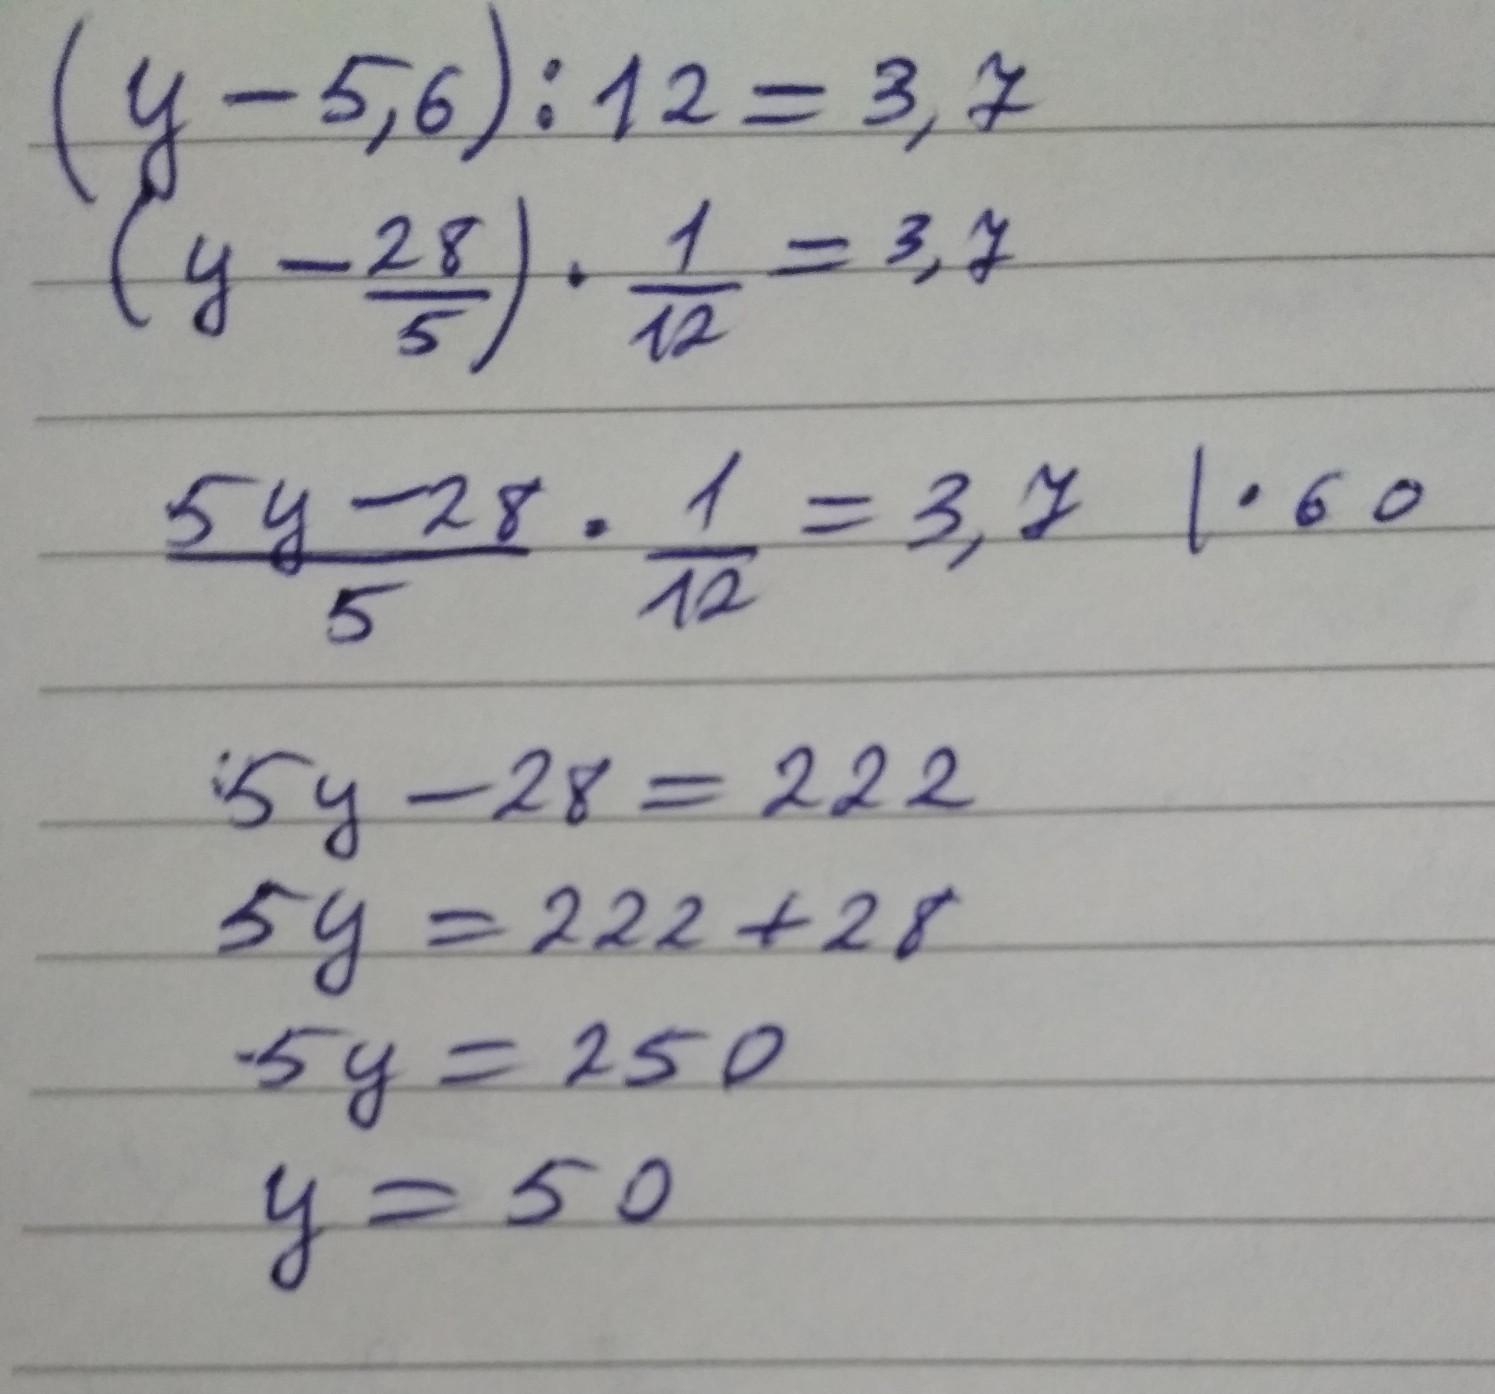 (y - 5,6) : 12 = 3,7
(y - 28/5) · 1/12 = 3,7
(5y - 28)/5 · 1/12 = 3,7 | · 60
5y - 28 = 222
5y = 222 + 28
5y = 250
y = 50